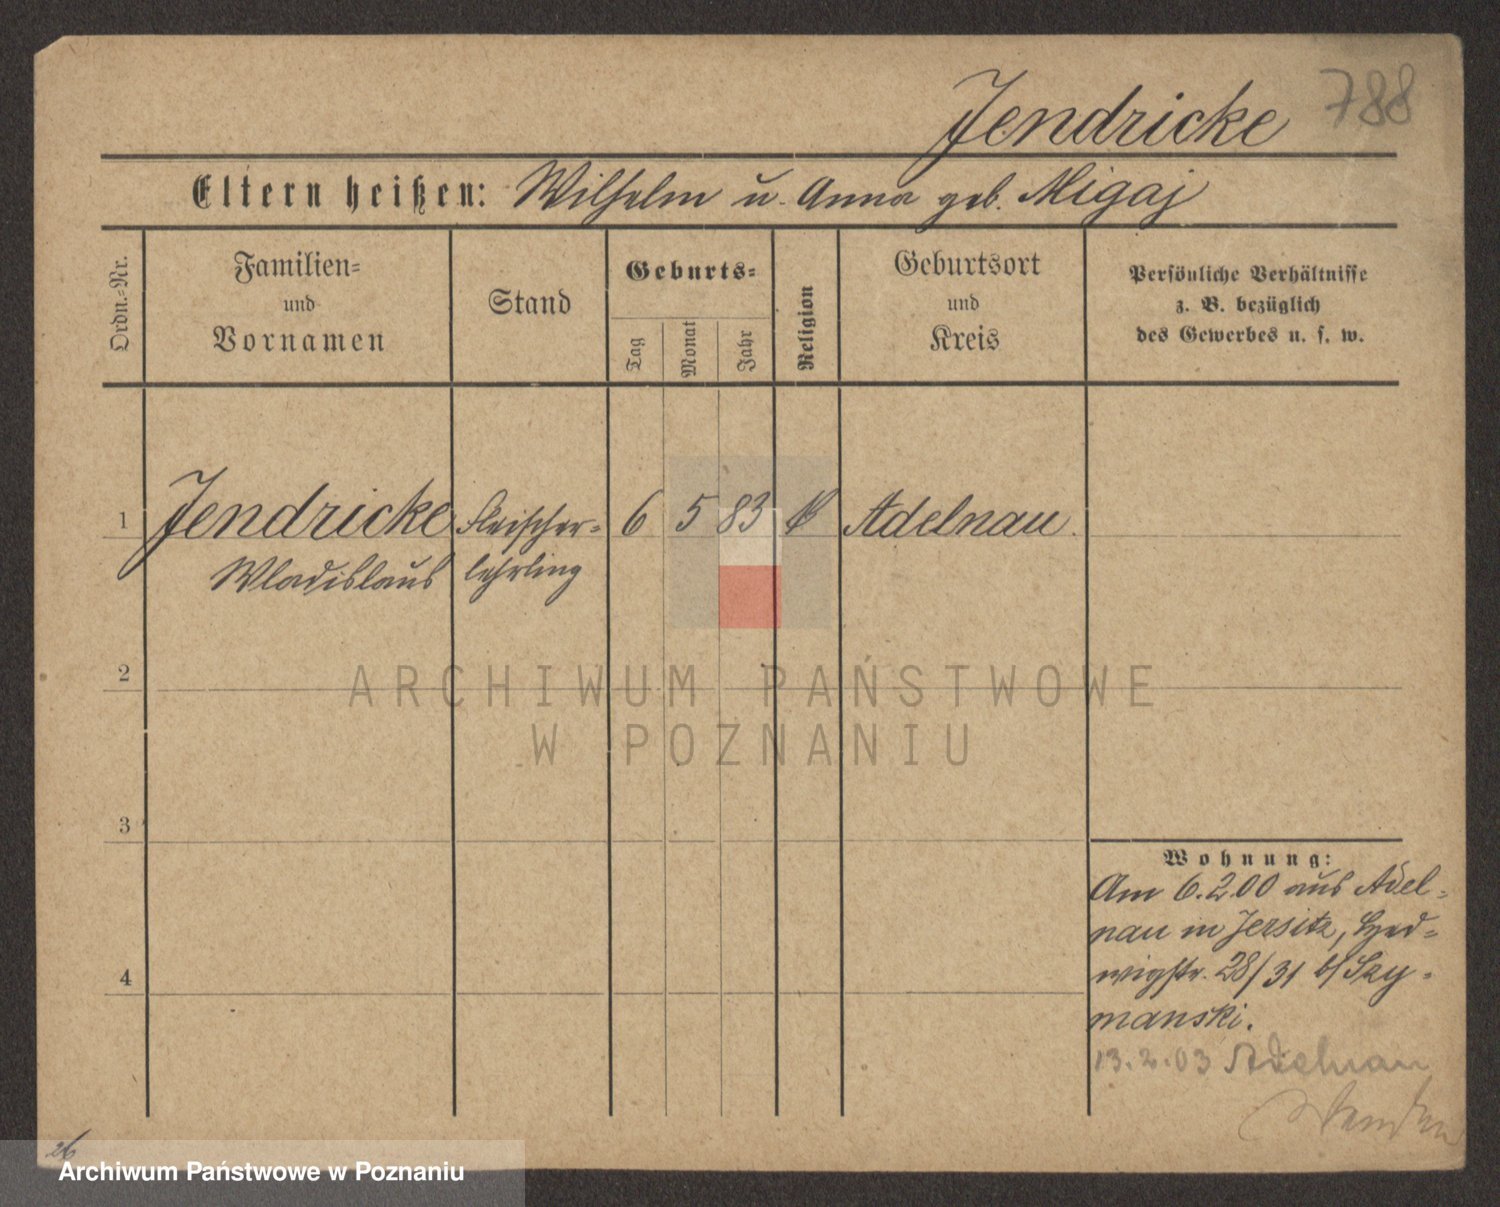 Jendricke 788
Eltern heißen: Wilhelm u. Anna geb. Migaj
Ordn.-Nr.
Familien-
und
Vornamen
Stand
Geburts-
Tag
Monat
Jahr
Religion
Geburtsort
und
Kreis
Persönliche Verhältnisse
z. B. bezüglich
des Gewerbes u. s. w.
1 Jendricke Fleischer- 6 5 83 Adelnau.
Wladislaus lehrling
2
ARCHIWUM PAŃSTWOWE
W POZNANIU
3
4
Wohnung:
Am 6.2.00 aus Adel-
nau in Jersitz, Hed-
wigstr. 28/31 b/ Szy-
manski.
13.2.03 Adelnau
26
Archiwum Państwowe w Poznaniu